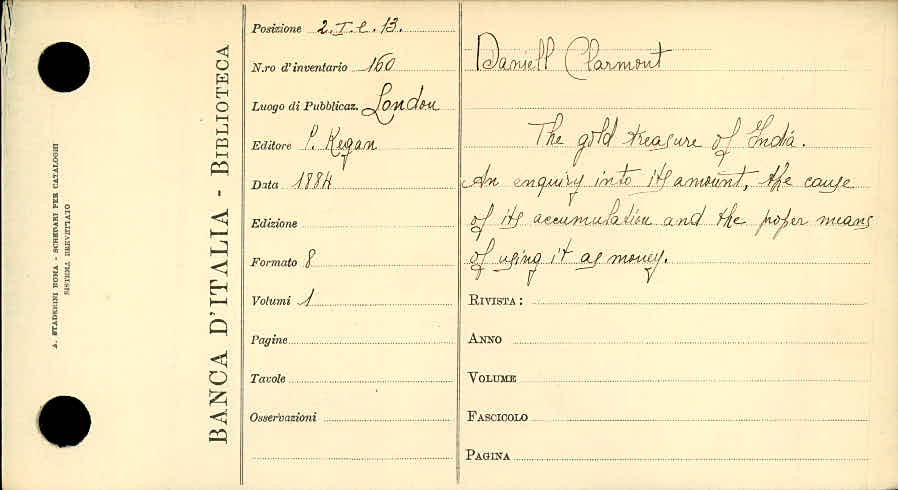 A. STADERINI ROMA - SCHEDARI PER CATALOGHI
SISTEMA BREVETTATO
BANCA D'ITALIA - BIBLIOTECA
Posizione 2. I. C. 13.
N.ro d'inventario 160
Luogo di Pubblicaz. London
Editore P. Kegan
Data 1884
Edizione
Formato 8
Volumi 1
Pagine
Tavole
Osservazioni
Daniell Clarmont
The gold treasure of India.
An enquiry into its amount, the cause
of its accumulation and the proper means
of using it as money.
RIVISTA:
ANNO
VOLUME
FASCICOLO
PAGINA